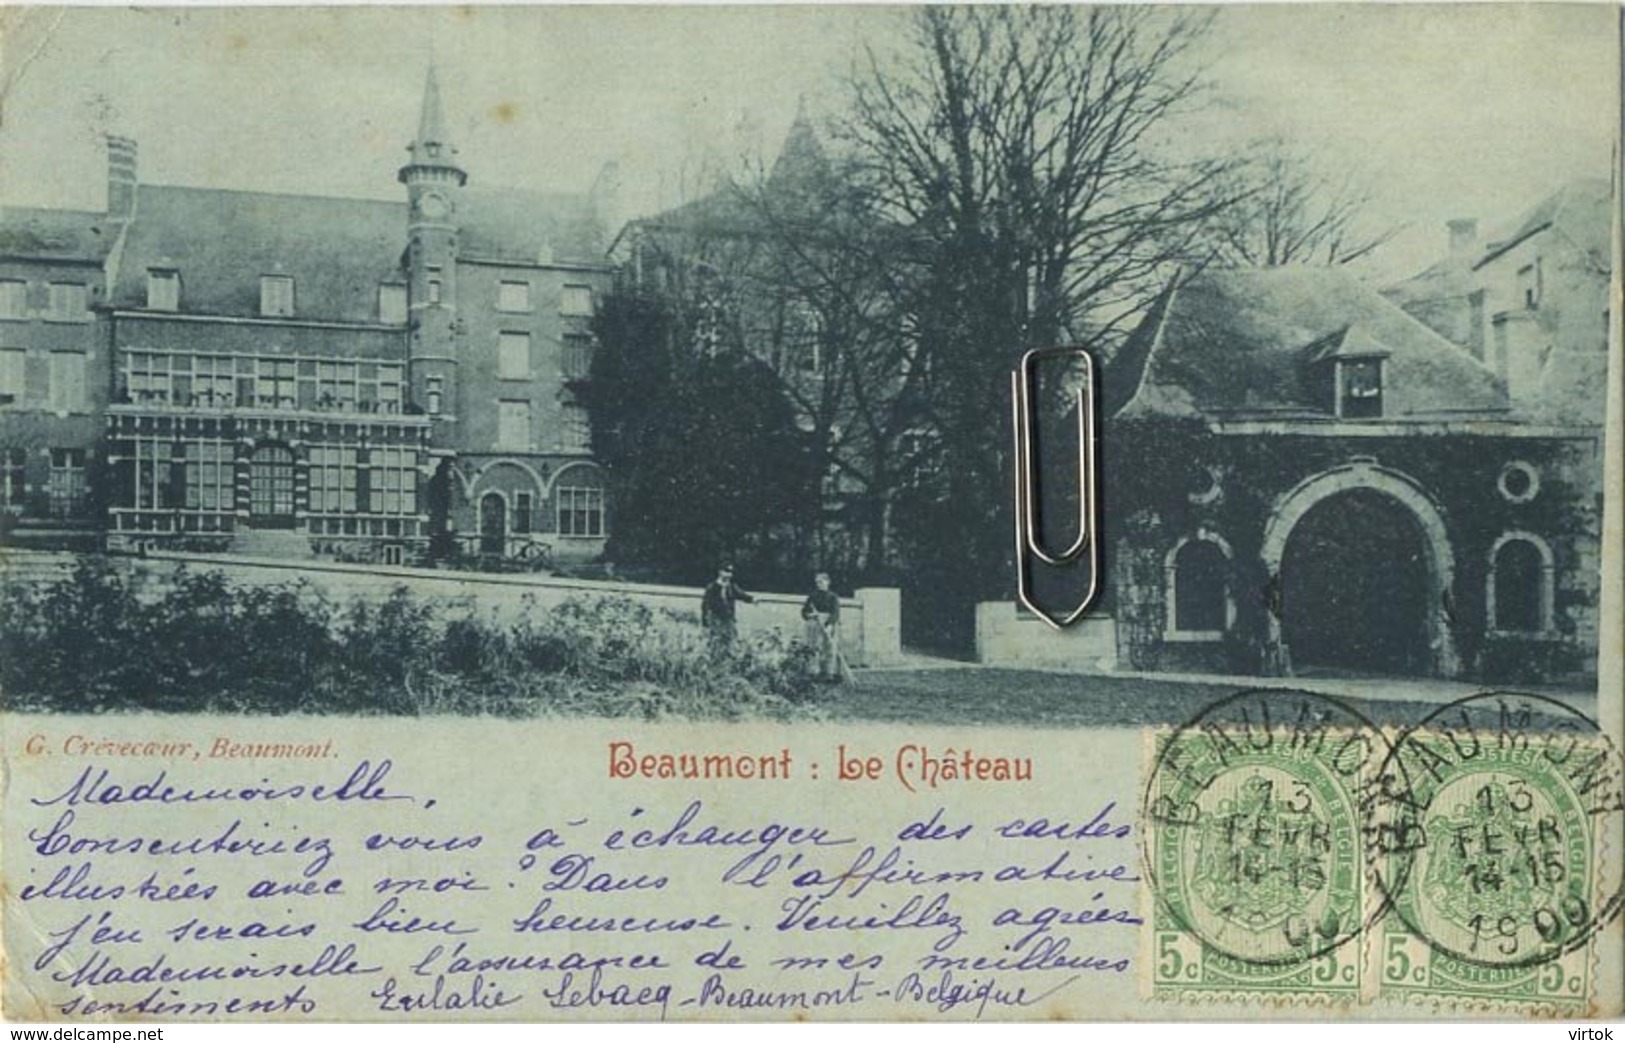 G. Crèvecœur, Beaumont.
Beaumont : Le Château
Mademoiselle,
Consentiriez vous à échanger des cartes
illustrées avec moi? Dans l'affirmative
j'en serais bien heureuse. Veuillez agréer
Mademoiselle l'assurance de mes meilleurs
sentiments Eulalie Lebacq-Beaumont-Belgique
BEAUMONT
13
FEVR
14-15
1900
5c 5c
POSTERIJEN
BEAUMONT
13
FEVR
14-15
1900
5c 5c
POSTERIJEN
virtok